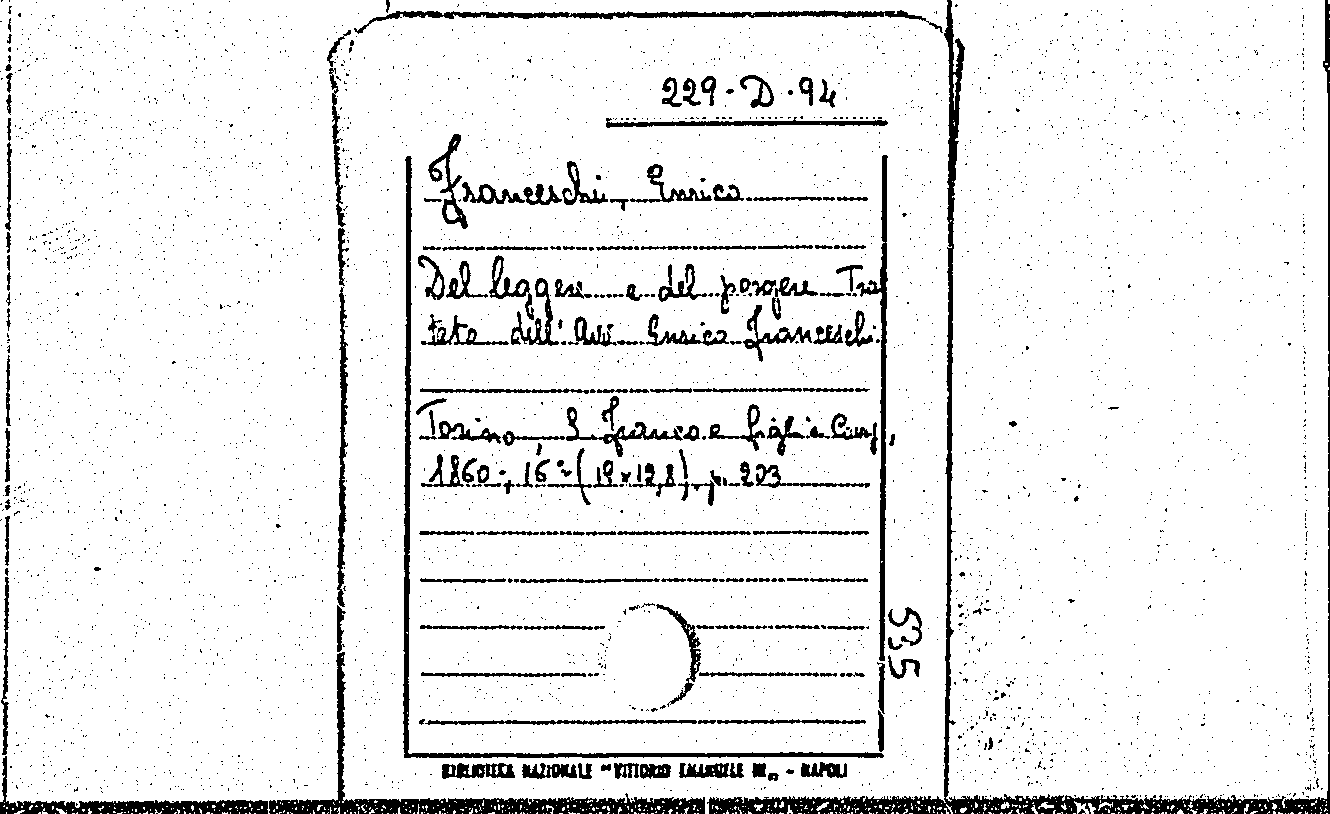 229 · D · 94
Franceschi, Enrico
Del leggere e del porgere Trat
tato dell'Avv Enrico Franceschi.
Torino, S Franco e figli e Comp,
1860 -, 16° - (19 x 12,8). p. 203
535
BIBLIOTECA NAZIONALE "VITTORIO EMANUELE III" - NAPOLI